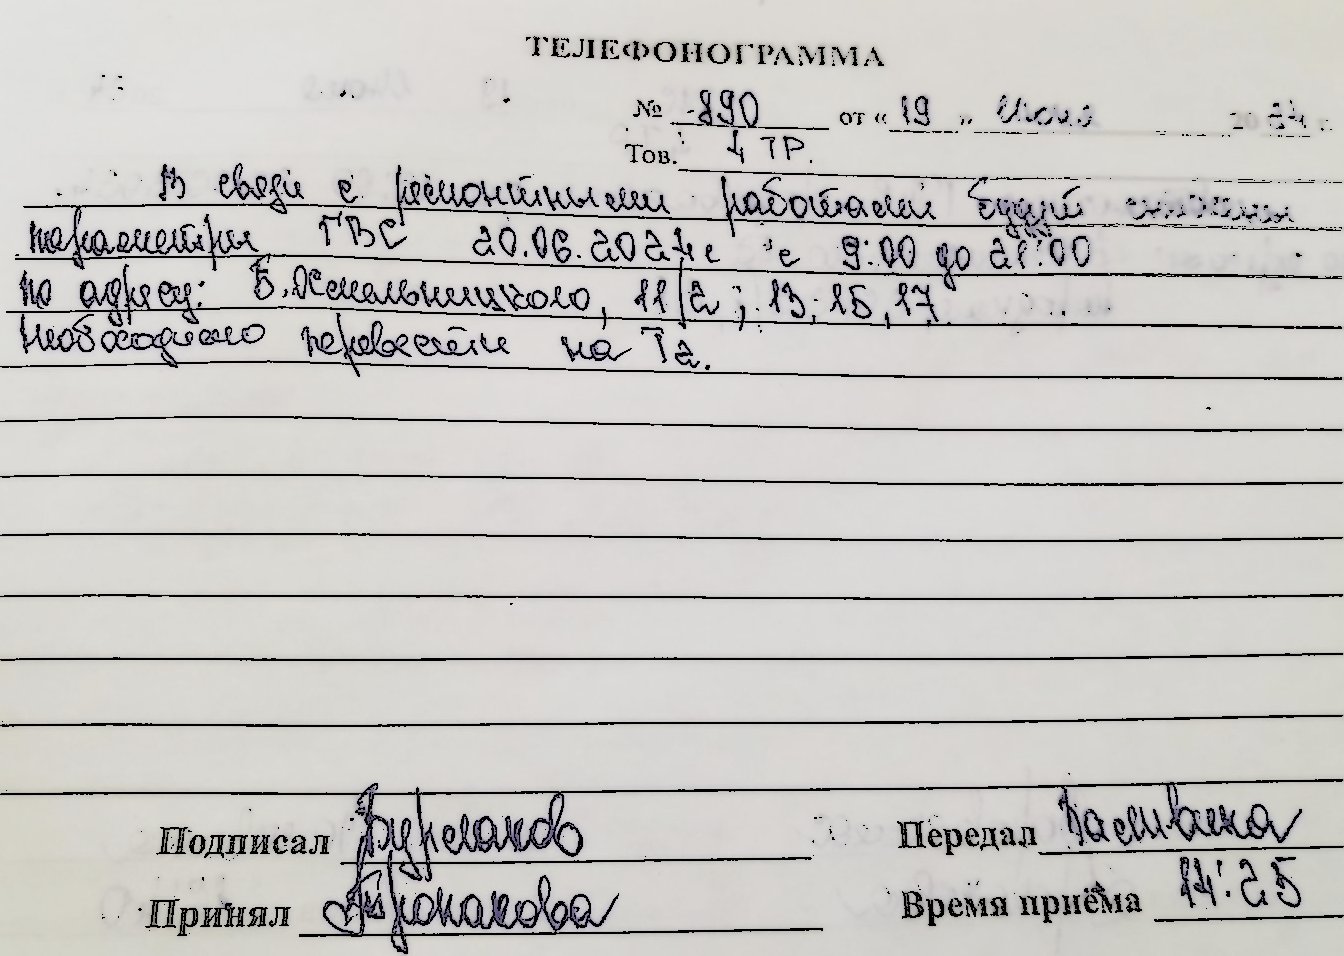 ТЕЛЕФОНОГРАММА
№ 890 от « 19 » июня 2024 г.
Тов. 4 ТР.
В связи с ремонтными работами будут снижены
параметры ГВС 20.06.2024г с 9:00 до 21:00
по адресу: Б.Хмельницкого, 11/2; 13, 15, 17.
Необходимо перевести на Т2.
Подписал Бурлаков Передал
Принял Время приёма 14:25